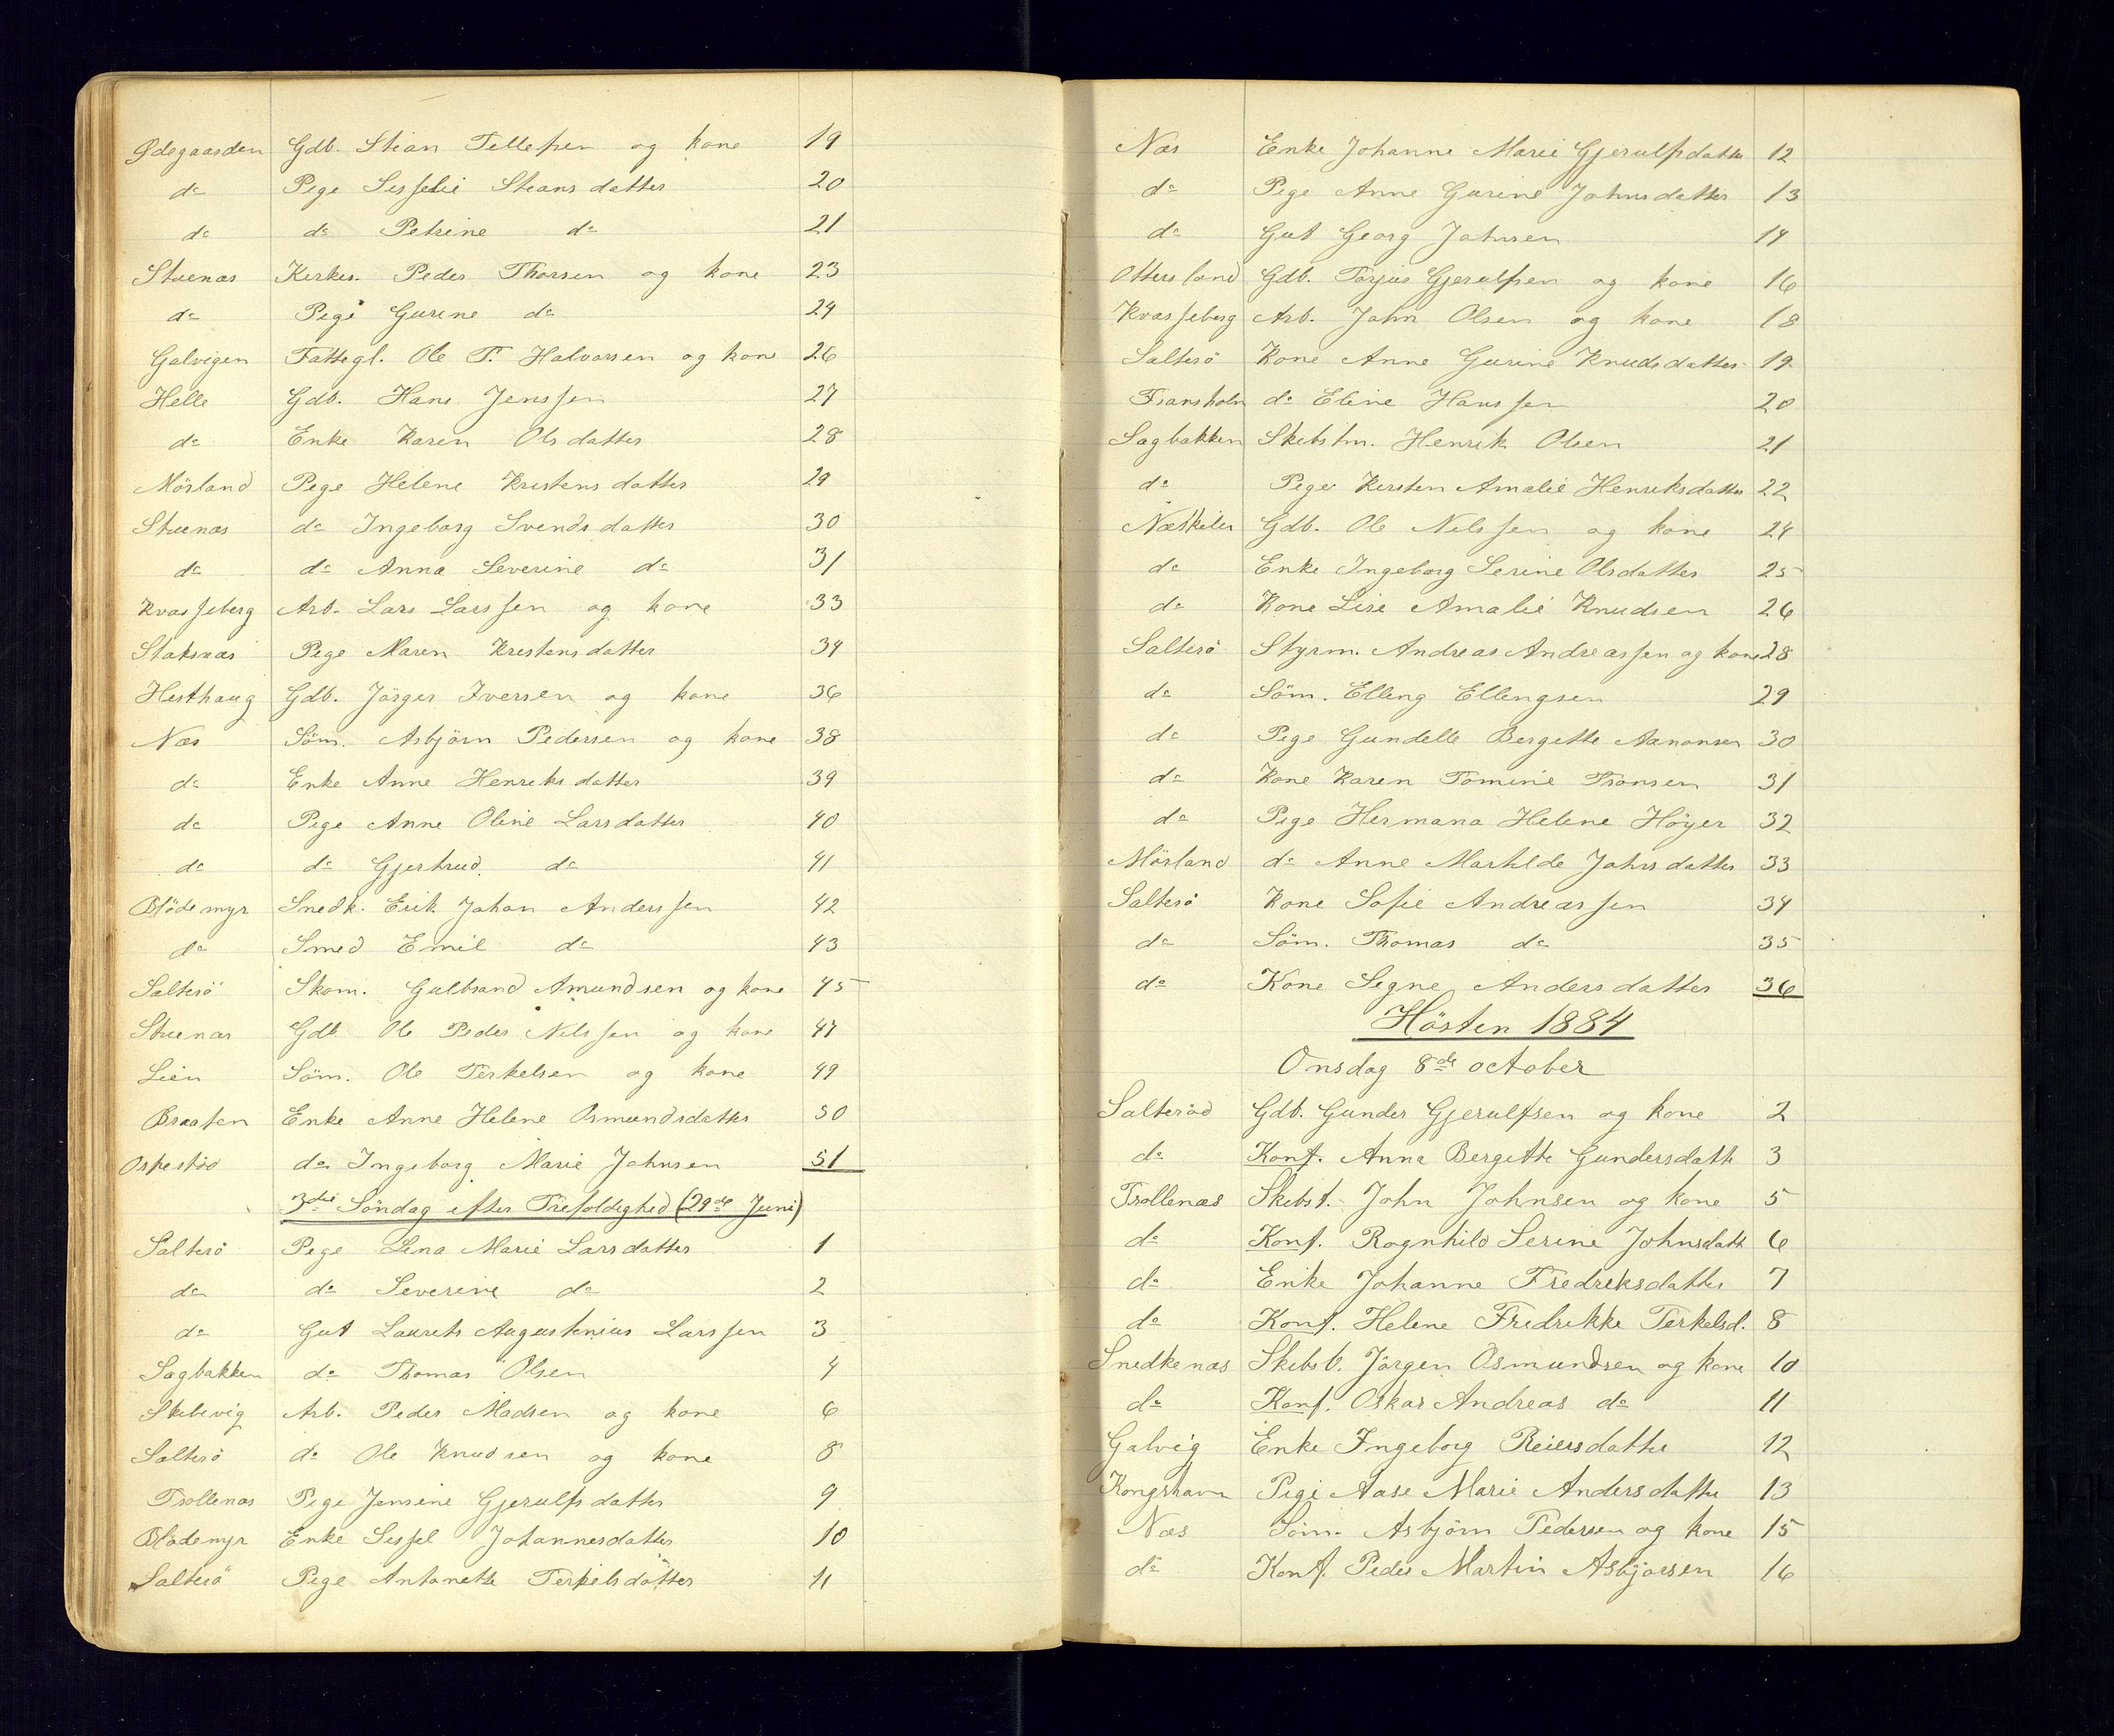 Ødegaarden Gdb. Stian Tellefsen og kone 19
do Pige Sisselie Stiansdatter 20
do do Petrine do 21
Stuenæs Kirkes. Peder Thorsen og kone 23
do Pige Gurine do 24
Galvigen Fattigl. Ole T. Halvorsen og kone 26
Helle Gdb. Hans Jenssen 27
do Enke Karen Olsdatter 28
Mörland Pige Helene Kristensdatter 29
Stuenæs do Ingeborg Svendsdatter 30
do do Anna Severine do 31
Kvasseberg Arb. Lars Larssen og kone 33
Staksnæs Pige Maren Kristensdatter 34
Hesthaug Gdb. Jörger Iversen og kone 36
Næs Söm. Asbjörn Pedersen og kone 38
do Enke Anne Henriksdatter 39
do Pige Anne Oline Larsdatter 40
do do Gjertrud do 41
Blödemyr Snedk. Erik Johan Anderssen 42
do Smed Emil do 43
Salterö Skom. Gulbrand Amundsen og kone 45
Stuenæs Gdb. Ole Peder Nilssen og kone 47
Lien Söm. Ole Terkelsen og kone 49
Braaten Enke Anne Helene Osmundsdatter 50
do Ingeborg Marie Johnsen 51
3die Söndag efter Trefoldighed (29de Juni)
Salterö Pige Lena Marie Larsdatter 1
do do Severine do 2
do Gut Laurits Augustinius Larssen 3
Sagbakken do Thomas Olsen 4
Skibevig Arb. Peder Madsen og kone 6
Salterö do Ole Knudsen og kone 8
Trollenæs Pige Jensine Gjerulfsdatter 9
Blödemyr Enke Sissel Johannesdatter 10
Salterö Pige Antonette Terkelsdatter 11
Næs Enke Johanne Marie Gjerulfsdatter 12
do Pige Anne Gurine Johnsdatter 13
do Gut Georg Johnsen 14
Ottersland Gdb. Torjus Gjerulfsen og kone 16
Kvasseberg Arb. John Olsen og kone 18
Salterö Kone Anne Gurine Knudsdatter 19
Fransholm do Eline Hanssen 20
Sagbakken Skibstm. Henrik Olsen 21
do Pige Kirsten Amalie Henriksdatter 22
Næskilen Gdb. Ole Nilssen og kone 24
do Enke Ingeborg Serine Olsdatter 25
do Kone Lise Amalie Knudsen 26
Salterö Styrm. Andreas Andreassen og kone 28
do Söm. Elling Ellingsen 29
do Pige Gundelle Bergitte Aanonsen 30
do Kone Karen Tomine Tronsen 31
do Pige Hermana Helene Höyer 32
Mörland do Anne Marthilde Johnsdatter 33
Salterö Kone Sofie Andreassen 34
do Söm. Thomas do 35
do Kone Signe Andersdatter 36
Hösten 1884
Onsdag 8de october
Salteröd Gdb. Gunder Gjerulfsen og kone 2
do Konf. Anna Bergitte Gundersdatt 3
Trollenæs Skibst. John Johnsen og kone 5
do Konf. Ragnhild Serine Johnsdatt 6
do Enke Johanne Fredriksdatter 7
do Konf. Helene Fredrikke Terkelsd. 8
Snedkenæs Skibsb. Jörgen Osmundsen og kone 10
do Konf. Oskar Andreas do 11
Galvig Enke Ingeborg Reiersdatter 12
Kongshavn Pige Aase Marie Andersdatter 13
Næs Söm. Asbjörn Pedersen og kone 15
do Konf. Peder Martin Asbjorsen 16